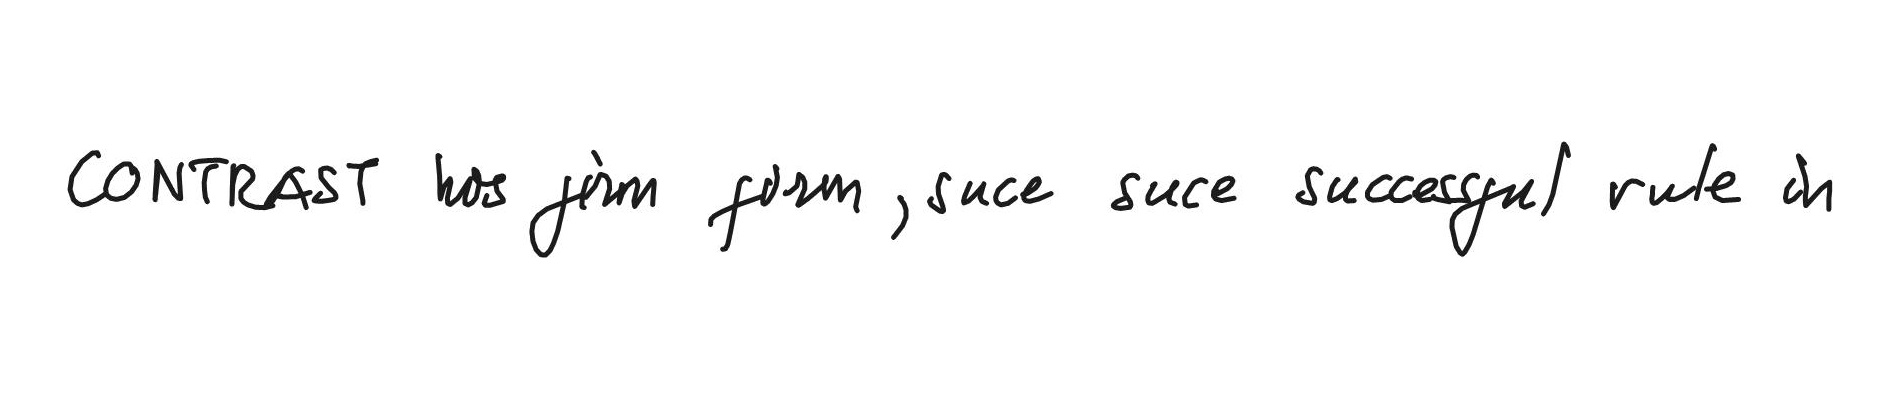 CONTRAST has firm form, suce suce successful rule in